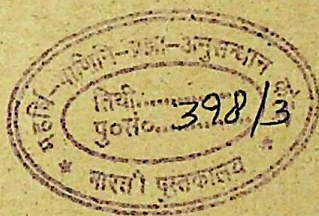 महर्षि-पाणिनि-प्रज्ञा-अनुसन्धान
तिथी............
पु०सं०.... 398/3
भारती पुस्तकालय